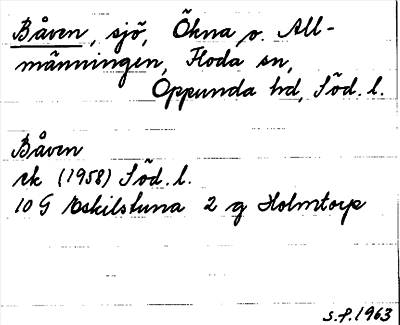 Båven, sjö, Ökna o. All-
männingen, Floda sn,
Oppunda hd, Söd. l.
Båven
rk (1958) Söd. l.
10 G Eskilstuna 2 g Holmtorp
s.f. 1963